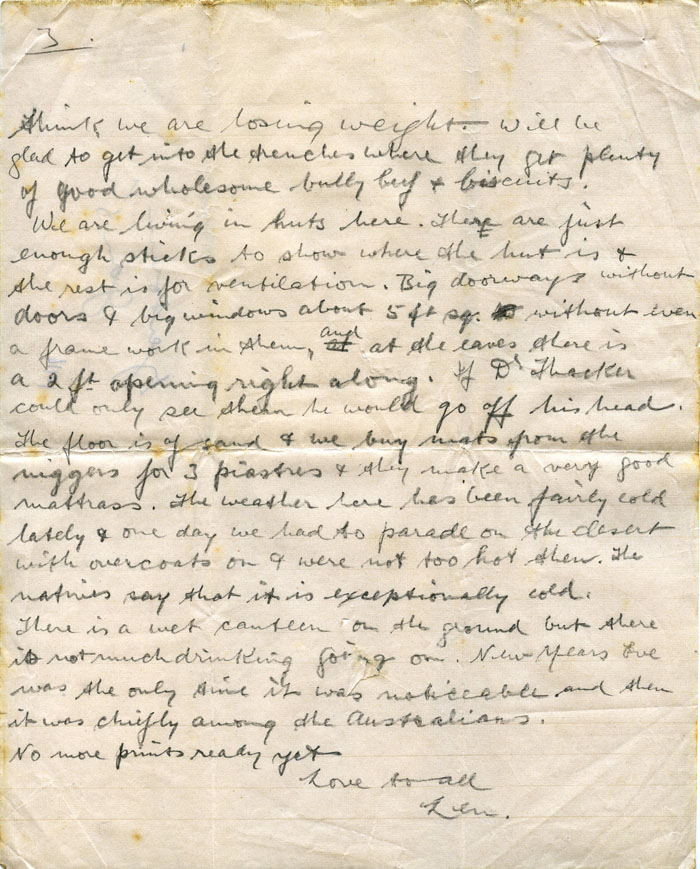 3.
think we are losing weight. Will be
glad to get into the trenches where they get plenty
of good wholesome bully beef & biscuits.
We are living in huts here. There are just
enough sticks to show where the hut is &
the rest is for ventilation. Big doorways without
doors & big windows about 5 ft sq. without even
a frame work in them, and at the eaves there is
a 2 ft opening right along. If Dr Thacker
could only see them he would go off his head.
The floor is of sand & we buy mats from the
niggers for 3 piastres & they make a very good
mattrass. The weather here has been fairly cold
lately & one day we had to parade on the desert
with overcoats on & were not too hot then. The
natives say that it is exceptionally cold.
There is a wet canteen on the ground but there
is not much drinking going on. New Years Eve
was the only time it was noticeable and then
it was chiefly among the Australians.
No more prints ready yet
Love to all
Len.